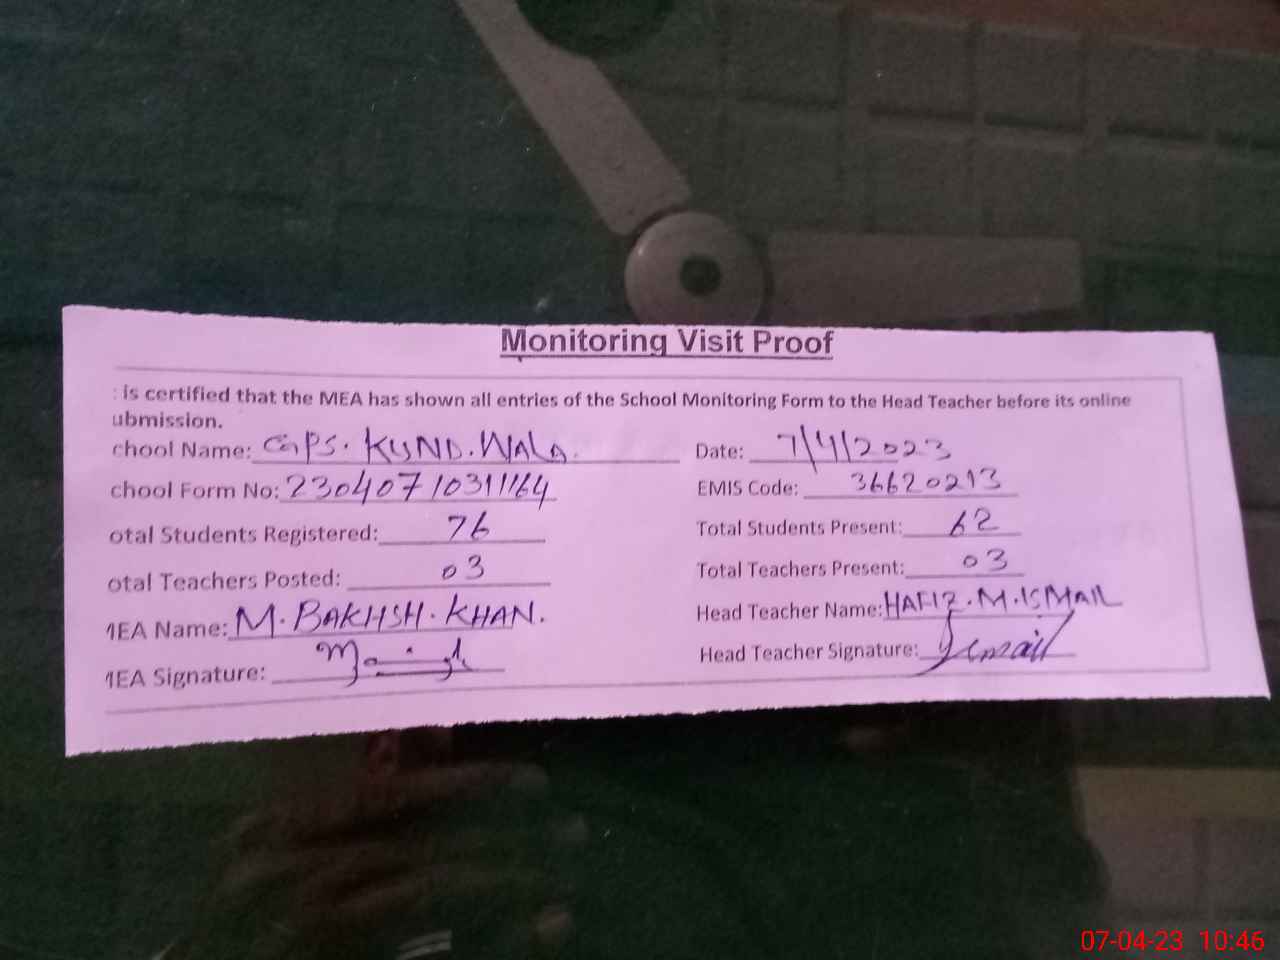 Monitoring Visit Proof
is certified that the MEA has shown all entries of the School Monitoring Form to the Head Teacher before its online
ubmission.
chool Name: GPS. KUND. WALA. Date: 7/4/2023
chool Form No: 23040710311164 EMIS Code: 36620213
otal Students Registered: 76 Total Students Present: 62
otal Teachers Posted: 03 Total Teachers Present: 03
MEA Name: M. BAKHSH. KHAN. Head Teacher Name: HAFIZ. M. ISMAIL
MEA Signature: Head Teacher Signature: Ismail
07-04-23 10:46